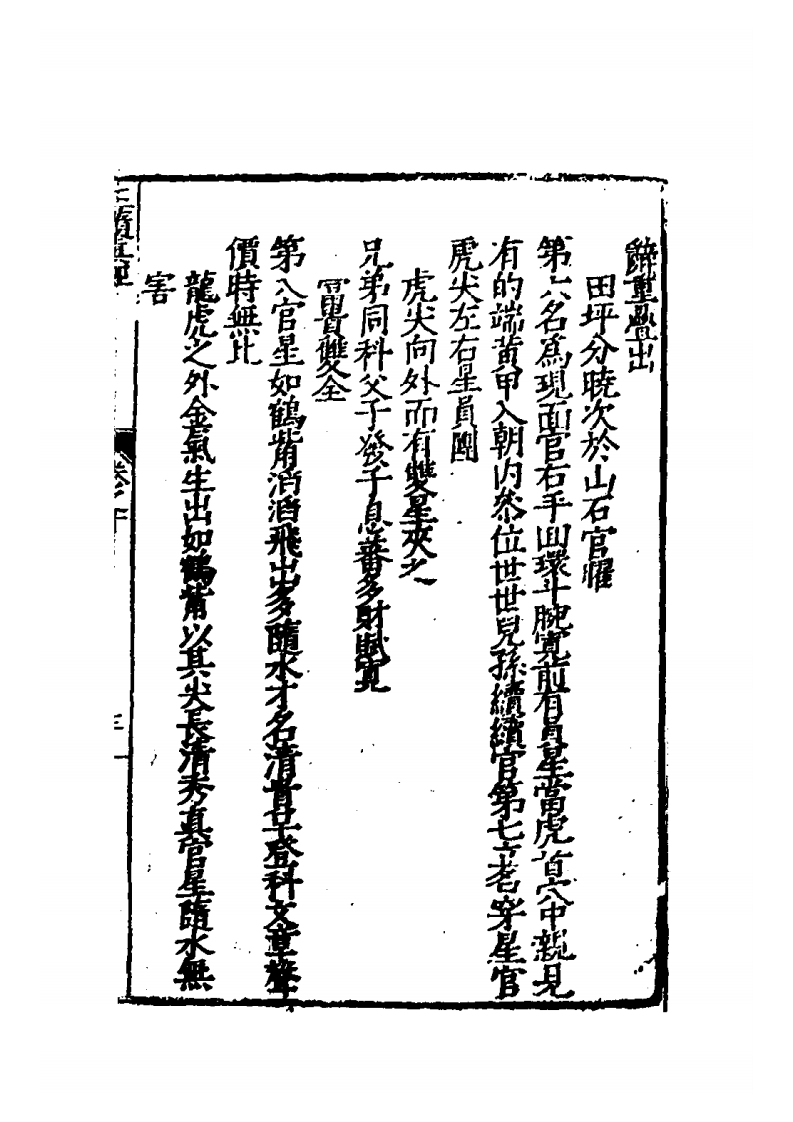 饒重疊出
田坪分曉次於山石官耀
第六名爲現面官右手回環斗腕寬前有員星當虎首穴中親見
有的端黃甲入朝內叅位世世兒孫續續官第七立名穿星官
虎尖左右星員團
虎尖向外而有雙星夾之
兄弟同科父子發子息蕃多財賦寬
冨貴雙全
第八官星如鶴觜消消飛出多隨水才名清貴早登科文章聲
價時無比
龍虎之外金氣生出如鶴觜以其尖長清秀真官星隨水無
害
真經
卷之